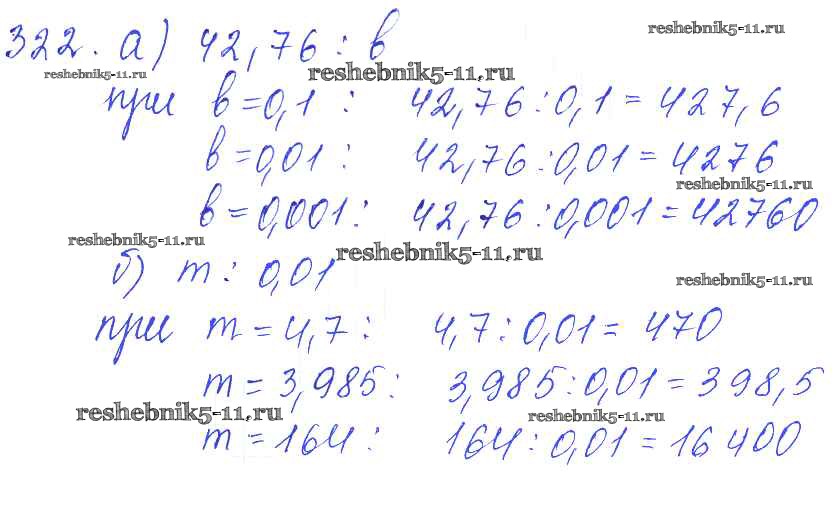 reshebnik5-11.ru
322. а) 42,76 : в
reshebnik5-11.ru reshebnik5-11.ru
при в=0,1 : 42,76:0,1=427,6
в=0,01 : 42,76:0,01=4276
reshebnik5-11.ru
в=0,001: 42,76:0,001=42760
reshebnik5-11.ru reshebnik5-11.ru
б) m : 0,01
reshebnik5-11.ru
при m=4,7 : 4,7:0,01=470
m=3,985: 3,985:0,01=398,5
reshebnik5-11.ru reshebnik5-11.ru
m=164: 164:0,01=16400